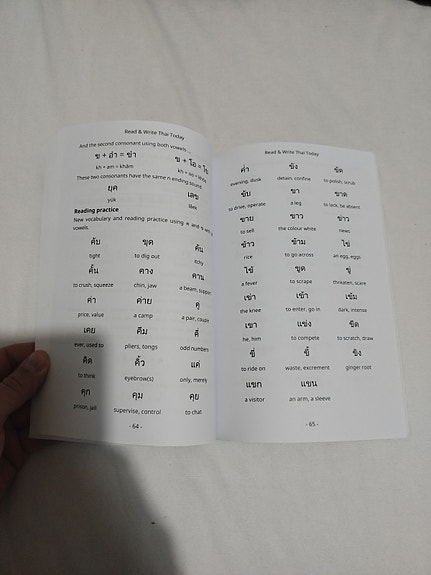 Read & Write Thai Today
And the second consonant using both vowels ...
ข + อำ = ขำ
kh + am = khăm
ข + โอ = โข
kh + oo = khŏo
These two consonants have the same n ending sound.
ยุค
เลข
yúk
lêek
Reading practice
New vocabulary and reading practice using ค and ข with
vowels.
คับ ขุด คัน
tight to dig out itchy
คั้น คาง คาน
to crush, squeeze chin, jaw a beam, support
ค่า ค่าย คู่
price, value a camp a pair, couple
เคย คีม คี่
ever, used to pliers, tongs odd numbers
คิด คิ้ว แค่
to think eyebrow(s) only, merely
คุก คุม คุย
prison, jail supervise, control to chat
- 64 -
Read & Write Thai Today
ค่ำ ขัง ขัด
evening, dusk detain, confine to polish, scrub
ขับ ขา ขาด
to drive, operate a leg to lack, be absent
ขาย ขาว ข่าว
to sell the colour white news
ข้าว ข้าม ไข่
rice to go across an egg, eggs
ไข้ ขูด ขู่
a fever to scrape threaten, scare
เข่า เข้า เข้ม
the knee to enter, go in dark, intense
เขา แข่ง ขีด
he, him to compete to scratch, draw
ขี่ ขี้ ขิง
to ride on waste, excrement ginger root
แขก แขน
a visitor an arm, a sleeve
- 65 -